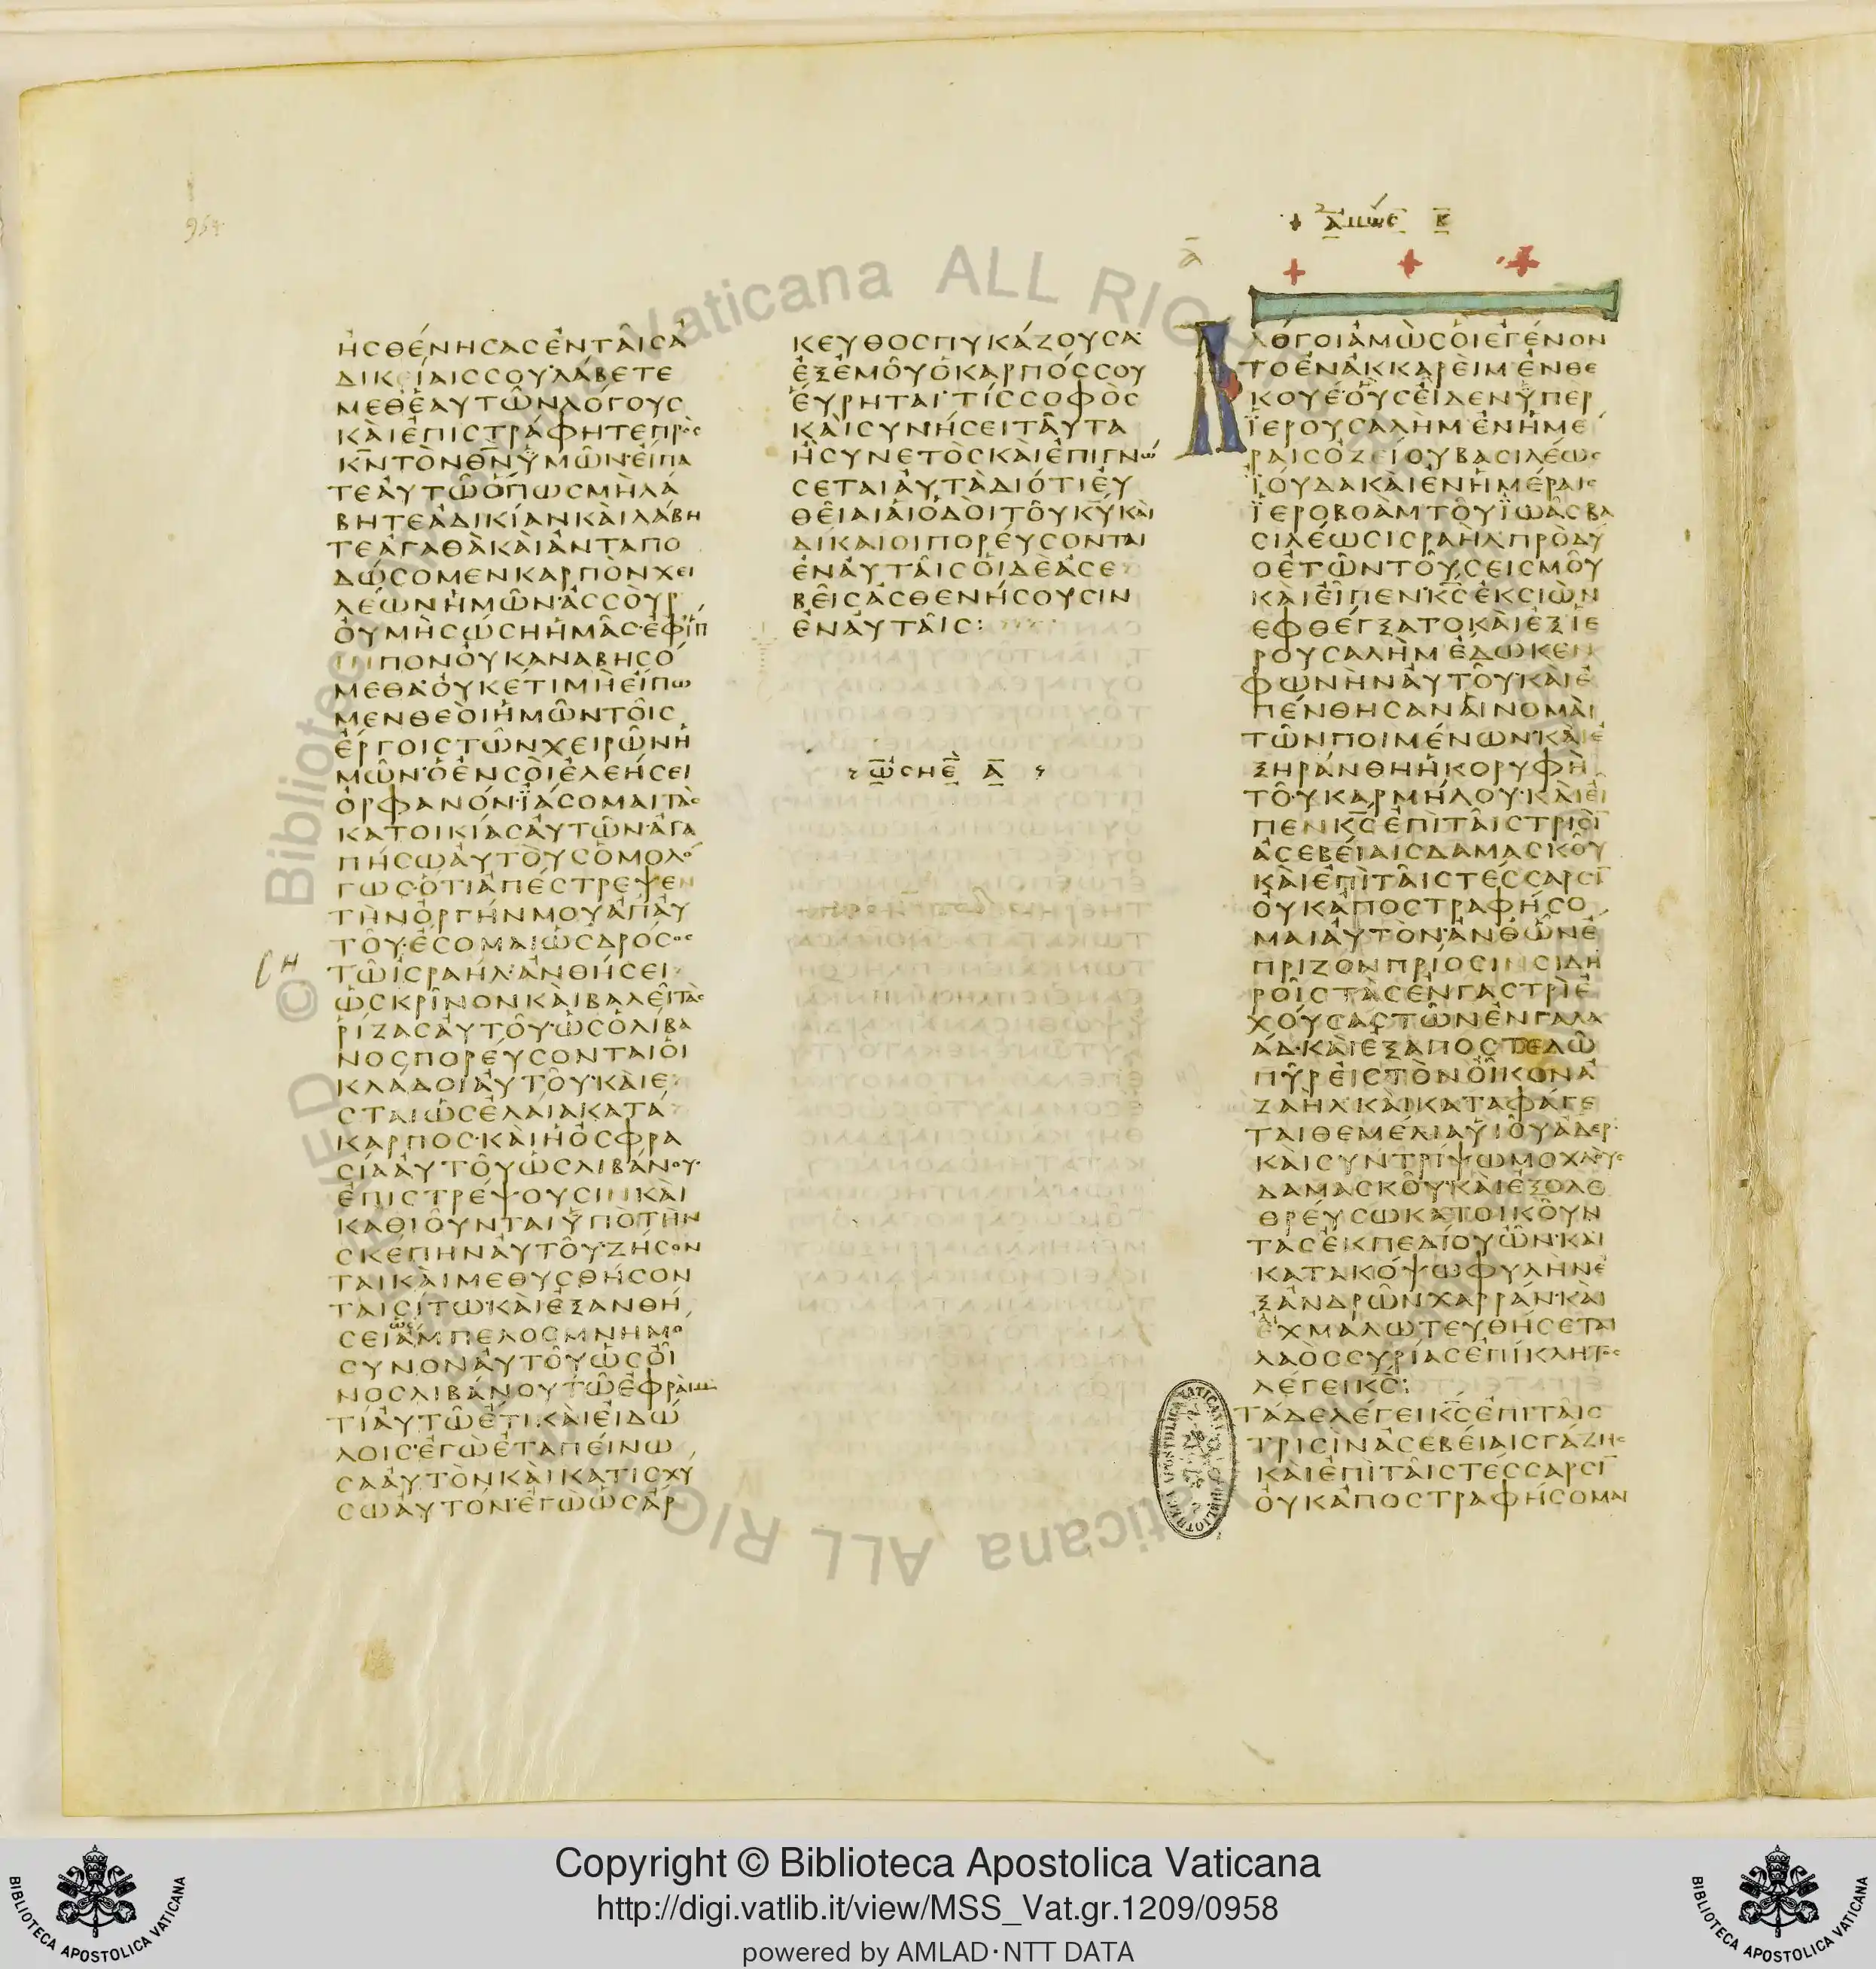 954
ἩΣΘΈΝΗΣΑΣἘΝΤΑΙ͂ΣἈ
ΔΙΚΕΊΑΙΣΣΟΥ·ΛΆΒΕΤΕ
ΜΕΘἙΑΥΤΩ͂ΝΛΌΓΟΥΣ
ΚΑῚἘΠΙΣΤΡΆΦΗΤΕΠΡῸΣ
Κ̅Ν̅ΤῸΝΘ̅Ν̅ὙΜΩ͂Ν·ΕἼΠΑ
ΤΕΑΥΤΩ͂ὍΠΩΣΜῊΛΆ
ΒΗΤΕἈΔΙΚΊΑΝΚΑῚΛΆΒΗ
ΤΕἈΓΑΘᾺΚΑῚἈΝΤΑΠΟ
ΔΏΣΟΜΕΝΚΑΡΠῸΝΧΕΙ
ΛΈΩΝἩΜΩ͂Ν·ἈΣΣΟῪΡ
ΟΥΜῊΣΏΣΗἩΜΑ͂Σ·ἘΦἽΠ
ΠΟΝΟΥΚΑΝΑΒΗΣΌ
ΜΕΘΑ·ΟΥΚΈΤΙΜῊΕἼΠΩ
ΜΕΝΘΕΟῚἩΜΩ͂ΝΤΟΙ͂Σ
ἜΡΓΟΙΣΤΩ͂ΝΧΕΙΡΩ͂ΝἩ
ΜΩ͂Ν·ὉἘΝΣΟῚἘΛΕΉΣΕΙ
ὈΡΦΑΝΌΝ·ἸΆΣΟΜΑΙΤᾺΣ
ΚΑΤΟΙΚΊΑΣΑΥΤΩ͂Ν·ἈΓΑ
ΠΉΣΩΑΥΤΟῪΣὉΜΟΛΌ
ΓΩΣ·ὍΤΙἈΠΈΣΤΡΕΨΕΝ
ΤῊΝὈΡΓΉΝΜΟΥἈΠΑΥ
ΤΟΥ͂·ἜΣΟΜΑΙὩΣΔΡΌΣΟΣ
ΤΩ͂ΙΣΡΑΉΛ·ἈΝΘΉΣΕΙ
ὩΣΚΡΊΝΟΝΚΑῚΒΑΛΕΙ͂ΤᾺΣ
ΡΊΖΑΣΑΥΤΟΥ͂·ὩΣὉΛΊΒΑ
ΝΟΣΠΟΡΕΎΣΟΝΤΑΙΟΙ
ΚΛΆΔΟΙΑΥΤΟΥ͂·ΚΑῚΕ
ΣΤΑΙὩΣἘΛΑΊΑΚΑΤΆ
ΚΑΡΠΟΣ·ΚΑῚἩὈΣΦΡΑ
ΣΊΑΑΥΤΟΥ͂ὩΣΛΙΒΆΝΟΥ·
ἘΠΙΣΤΡΈΨΟΥΣΙΝΚΑῚ
ΚΑΘΙΟΥ͂ΝΤΑΙὙΠῸΤῊΝ
ΣΚΈΠΗΝΑΥΤΟΥ͂·ΖΉΣΟΝ
ΤΑΙΚΑῚΜΕΘΥΣΘΉΣΟΝ
ΤΑΙΣΊΤΩ·ΚΑῚἘΞΑΝΘΉ
ὡς
ΣΕΙἌΜΠΕΛΟΣΜΝΗΜΌ
ΣΥΝΟΝΑΥΤΟΥ͂ὩΣΟΙ͂
ΝΟΣΛΙΒΆΝΟΥΤΩ͂ἘΦΡΑῚΜ
ΤΊΑΥΤΩ͂ἜΤΙ·ΚΑῚΕΙΔΏ
ΛΟΙΣ·ἘΓῺἘΤΑΠΕΊΝΩ
ΣΑΑΥΤῸΝΚΑῚΚΑΤΙΣΧΎ
ΣΩΑΥΤΌΝ·ἘΓῺὩΣἌΡ
ΚΕΥΘΟΣΠΥΚΆΖΟΥΣΑ·
ἘΞἘΜΟΥ͂ὉΚΑΡΠΌΣΣΟΥ
ΕΎΡΗΤΑΙ·ΤΊΣΣΟΦῸΣ
ΚΑῚΣΥΝΉΣΕΙΤΑΥ͂ΤΑ
ἪΣΥΝΕΤῸΣΚΑῚἘΠΙΓΝΏ
ΣΕΤΑΙΑΥΤᾺΔΙΌΤΙΕΥ
ΘΕΙ͂ΑΙΑΙὉΔΟῚΤΟΥ͂Κ̅Υ̅ΚΑῚ
ΔΊΚΑΙΟΙΠΟΡΕΎΣΟΝΤΑΙ
ἘΝΑΥΤΑΙ͂ΣΟΙΔΕἈΣΕ
ΒΕΙ͂ΣἈΣΘΕΝΉΣΟΥΣΙΝ
ἘΝΑΥΤΑΙ͂Σ:
ὨΣΗῈ Α̅
+ ἈΜῺΣ Β̅
Α̅
ΛΌΓΟΙἈΜῺΣΟΙΕΓΈΝΟΝ
ΤΟἘΝἈΚΚΑΡΕῚΜἘΝΘΕ
ΚΟΥΕ·ΟΥΣΕΙ͂ΔΕΝὙΠῈΡ
ἸΕΡΟΥΣΑΛῊΜἘΝἩΜΈ
ΡΑΙΣὈΖΕΊΟΥΒΑΣΙΛΈΩΣ
ἸΟΎΔΑΚΑῚἘΝἩΜΈΡΑΙΣ
ἸΕΡΟΒΟᾺΜΤΟΥ͂ἸΩᾺΣΒΑ
ΣΙΛΈΩΣΙΣΡΑῊΛΠΡῸΔΎ
ΟἘΤΩ͂ΝΤΟΥ͂ΣΕΙΣΜΟΥ͂
ΚΑῚΕΙ͂ΠΕΝ·Κ̅Σ̅ἘΚΣΙῺΝ
ἘΦΘΈΓΞΑΤΟΚΑῚἘΞἸΕ
ΡΟΥΣΑΛῊΜἜΔΩΚΕΝ
ΦΩΝῊΝΑΥΤΟΥ͂·ΚΑῚἘ
ΠΈΝΘΗΣΑΝΑΙΝΟΜΑῚ
ΤΩ͂ΝΠΟΙΜΈΝΩΝ·ΚΑῚἘ
ΞΗΡΆΝΘΗἩΚΟΡΥΦῊ
ΤΟΥ͂ΚΑΡΜΉΛΟΥ·ΚΑῚΕΙ͂
ΠΕΝΚ̅Σ̅ἘΠῚΤΑΙ͂ΣΤΡΙΣῚ
ἈΣΕΒΕΊΑΙΣΔΑΜΑΣΚΟΥ͂
ΚΑῚἘΠῚΤΑΙ͂ΣΤΈΣΣΑΡΣΙ
ΟΥΚἈΠΟΣΤΡΑΦΉΣΟ
ΜΑΙΑΥΤῸΝ·ἈΝΘΩ͂ΝἜ
ΠΡΙΖΟΝΠΡΊΟΣΙΝΣΙΔΗ
ΡΟΙ͂ΣΤᾺΣἘΝΓΑΣΤΡῚἘ
ΧΟΎΣΑΣΤΩ͂ΝἘΝΓΑΛΑ
ΆΔ·ΚΑῚἘΞΑΠΟΣΤΕΛΩ͂
ΠΥ͂ΡΕΙΣΤῸΝΟΙ͂ΚΟΝἈ
ΖΑῊΛΚΑῚΚΑΤΑΦΆΓΕ
ΤΑΙΘΕΜΈΛΙΑὙΙΟΥ͂ἌΔΕΡ·
ΚΑῚΣΥΝΤΡΊΨΩΜΟΧΛΟῪΣ
ΔΑΜΑΣΚΟΥ͂·ΚΑῚἘΞΟΛΕ
ΘΡΕΎΣΩΚΑΤΟΙΚΟΥ͂Ν
ΤΑΣἘΚΠΕΔΊΟΥΩ͂Ν·ΚΑῚ
ΚΑΤΑΚΌΨΩΦΥΛῊΝἘ
ΞἈΝΔΡΩ͂ΝΧΑΡΡΆΝ·ΚΑῚ
ΑΙΧΜΑΛΩΤΕΥΘΉΣΕΤΑΙ
ΛΑῸΣΣΥΡΊΑΣἘΠΊΚΛΗΤΟΣ
ΛΈΓΕΙΚ̅Σ̅:
ΤΆΔΕΛΈΓΕΙΚ̅Σ̅ἘΠῚΤΑΙ͂Σ
ΤΡΙΣῚΝἈΣΕΒΕΊΑΙΣΓΆΖΗΣ
ΚΑῚἘΠῚΤΑΙ͂ΣΤΈΣΣΑΡΣΙ
ΟΥΚἈΠΟΣΤΡΑΦΉΣΟΜΑΙ
Copyright © Biblioteca Apostolica Vaticana
http://digi.vatlib.it/view/MSS_Vat.gr.1209/0958
powered by AMLAD·NTT DATA
BIBLIOTECA APOSTOLICA VATICANA
BIBLIOTECA APOSTOLICA VATICANA